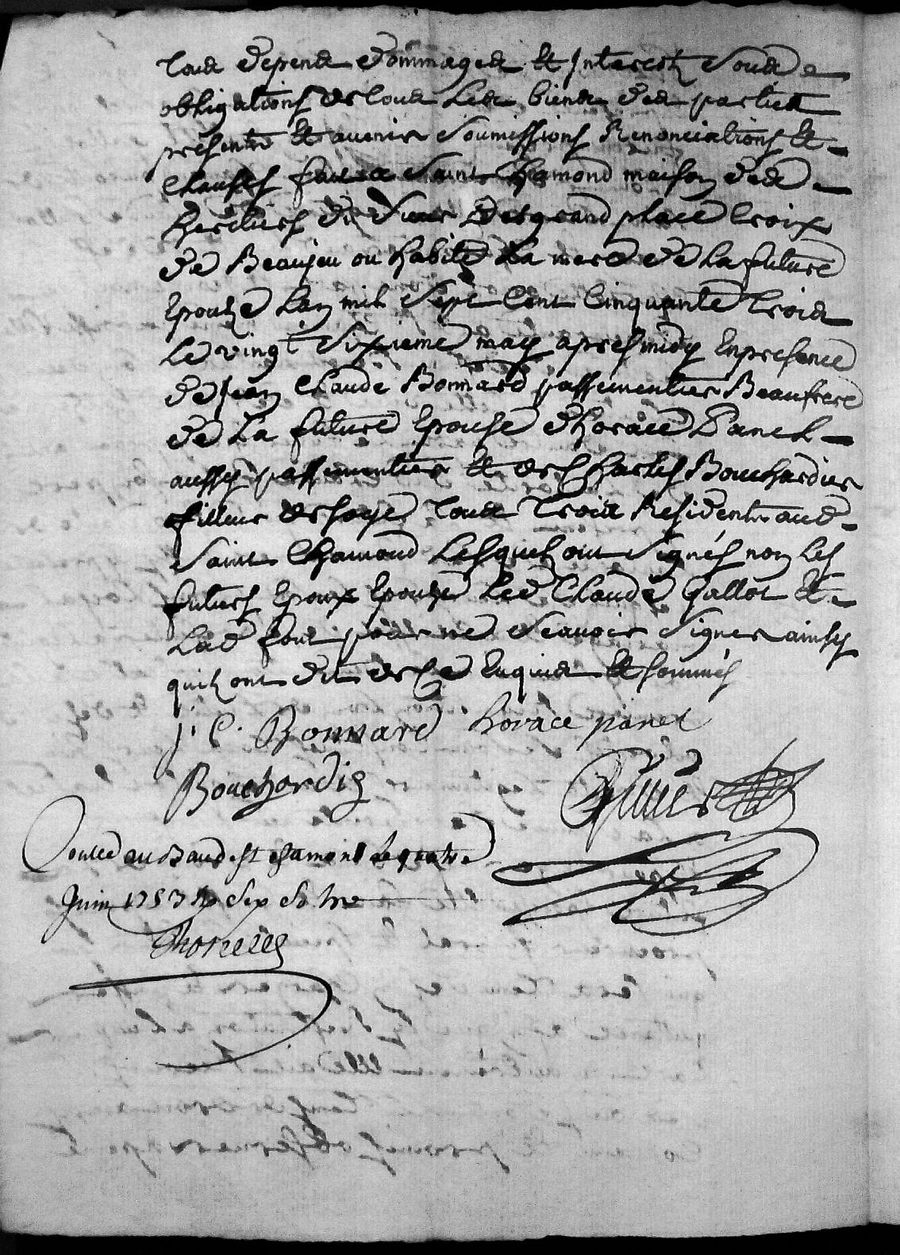 tous depens dommages et interests sous
obligations de tous les biens des parties
presents et avenir soumissions Renonciations et
Clauses fait a Saint Chamond maison des
heritiers du Sieur Desgrand place Croix
de Beaujeu ou habite La mere de La future
Epouze Lan mil Sept Cent Cinquante trois
Le vingt Sixieme may apres midy Enpresence
de Jean Claude Bonnard passementier Beaufrere
de La future Epouse dhorace Panel
aussy passementier et de Charles Bouchardier
filleur de soye tous trois Residents aud
Saint Chamond Lesquels ont Signés non Les
futurs Epoux Epouze Led Claude Gallot et
Lad font pour ne Scavoir Signer ainsy
quils ont dit de ce Enquis et sommés
j. C. Bonnard horace panel
Bouchardie
au Baud st chamond le quatre
Juin 1753